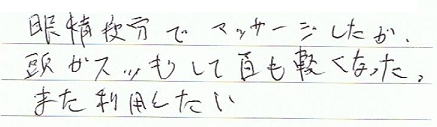 眼精疲労でマッサージしたが、
頭がスッキリして首も軽くなった。
また利用したい